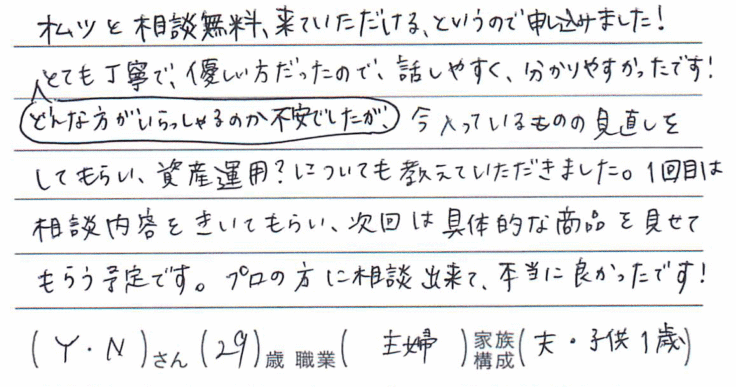 オムツと相談無料、来ていただける、というので申し込みました!
とても丁寧で、優しい方だったので、話しやすく、分かりやすかったです!
どんな方がいらっしゃるのか不安でしたが、今入っているものの見直しを
してもらい、資産運用?についても教えていただきました。1回目は
相談内容をきいてもらい、次回は具体的な商品を見せて
もらう予定です。プロの方に相談出来て、本当に良かったです!
(Y・N)さん(29)歳 職業(主婦)家族構成(夫・子供1歳)